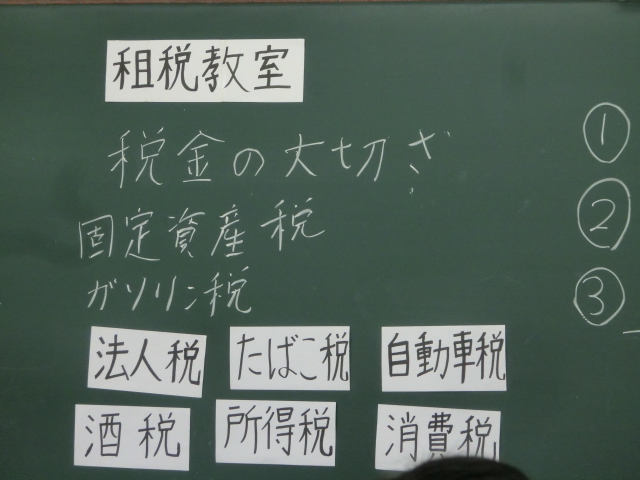 租税教室
税金の大切さ
固定資産税
ガソリン税
法人税 たばこ税 自動車税
酒税 所得税 消費税
①
②
③